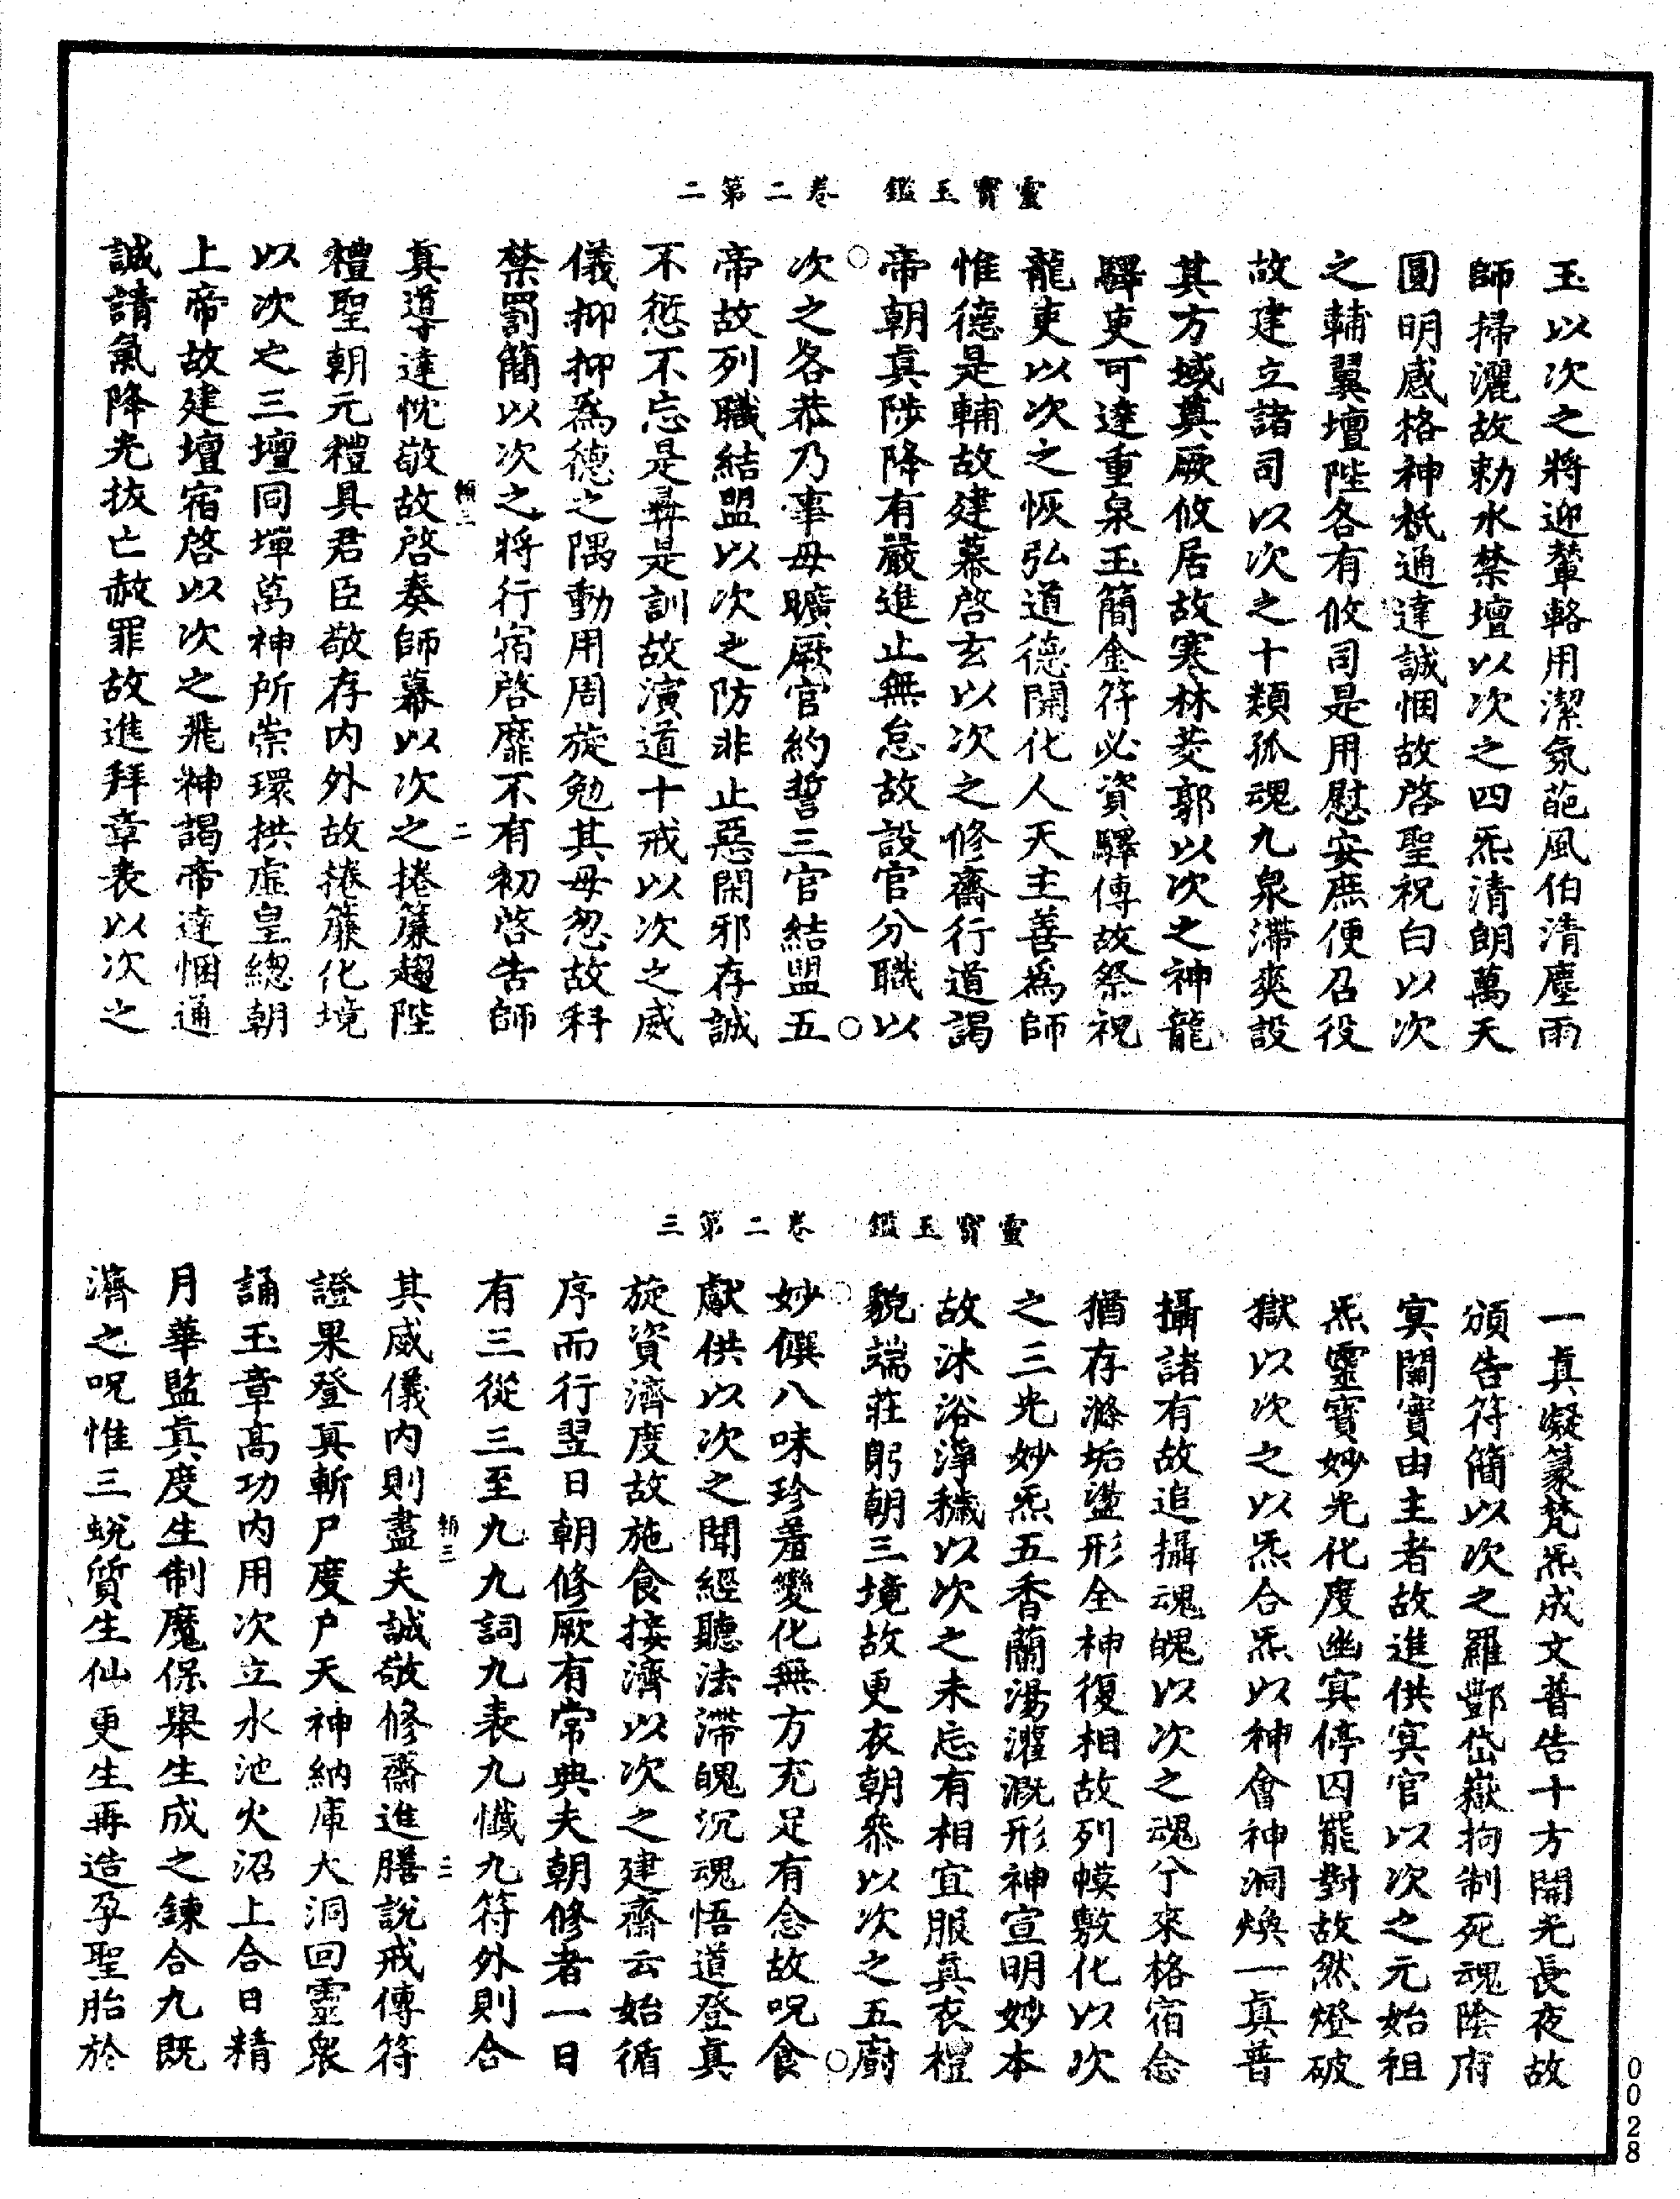 靈寶玉鑑 卷二第二
玉以次之將迎輦輅用潔氛葩風伯清塵雨
師掃灑故勅水禁壇以次之四炁清朗萬天
圓明感格神祇通達誠悃故啓聖祝白以次
之輔翼壇陛各有攸司是用慰安庶便召役
故建立諸司以次之十類孤魂九泉滯爽設
其方域奠厥攸居故寒林茭郭以次之神龍
驛吏可達重泉玉簡金符必資驛傳故祭祝
龍吏以次之恢弘道德開化人天主善為師
惟德是輔故建幕啓玄以次之修齋行道謁
帝朝真陟降有嚴進止無怠故設官分職以
次之各恭乃事毋曠厥官約誓三官結盟五
帝故列職結盟以次之防非止惡閑邪存誠
不愆不忘是彝是訓故演道十戒以次之威
儀抑抑為德之隅動用周旋勉其毋忽故科
禁罰簡以次之將行宿啓靡不有初啓告師
真導達忱敬故啓奏師幕以次之捲簾趨陛
禮聖朝元禮具君臣敬存内外故捲簾化境
以次之三壇同墠萬神所崇環拱虛皇緫朝
上帝故建壇宿啓以次之飛神謁帝達悃通
誠請氣降光拔亡赦罪故進拜章表以次之
二
靈寶玉鑑 卷二第三
一真凝篆梵炁成文普告十方開光長夜故
頒告符簡以次之羅酆岱嶽拘制死魂陰府
冥關實由主者故進供冥官以次之元始祖
炁靈寶妙光化度幽冥停囚罷對故然燈破
獄以次之以炁合炁以神會神洞煥一真普
攝諸有故追攝魂魄以次之魂兮來格宿念
猶存滌垢盪形全神復相故列幙敷化以次
之三光妙炁五香蘭湯灌溉形神宣明妙本
故沐浴淨穢以次之未忘有相宜服真衣禮
貌端莊躬朝三境故更衣朝叅以次之五廚
妙饌八味珍羞變化無方充足有念故呪食
獻供以次之聞經聽法滯魄沉魂悟道登真
旋資濟度故施食接濟以次之建齋云始循
序而行翌日朝修厥有常典夫朝修者一日
有三從三至九九九詞九表九懺九符外則合
其威儀内則盡夫誠敬修齋進膳說戒傳符
證果登真斬尸度户天神納庫大洞回靈衆
誦玉章高功内用次立水池火沼上合日精
月華監真度生制魔保舉生成之鍊合九既
濟之呪惟三蛻質生仙更生再造孕聖胎於
三
0028